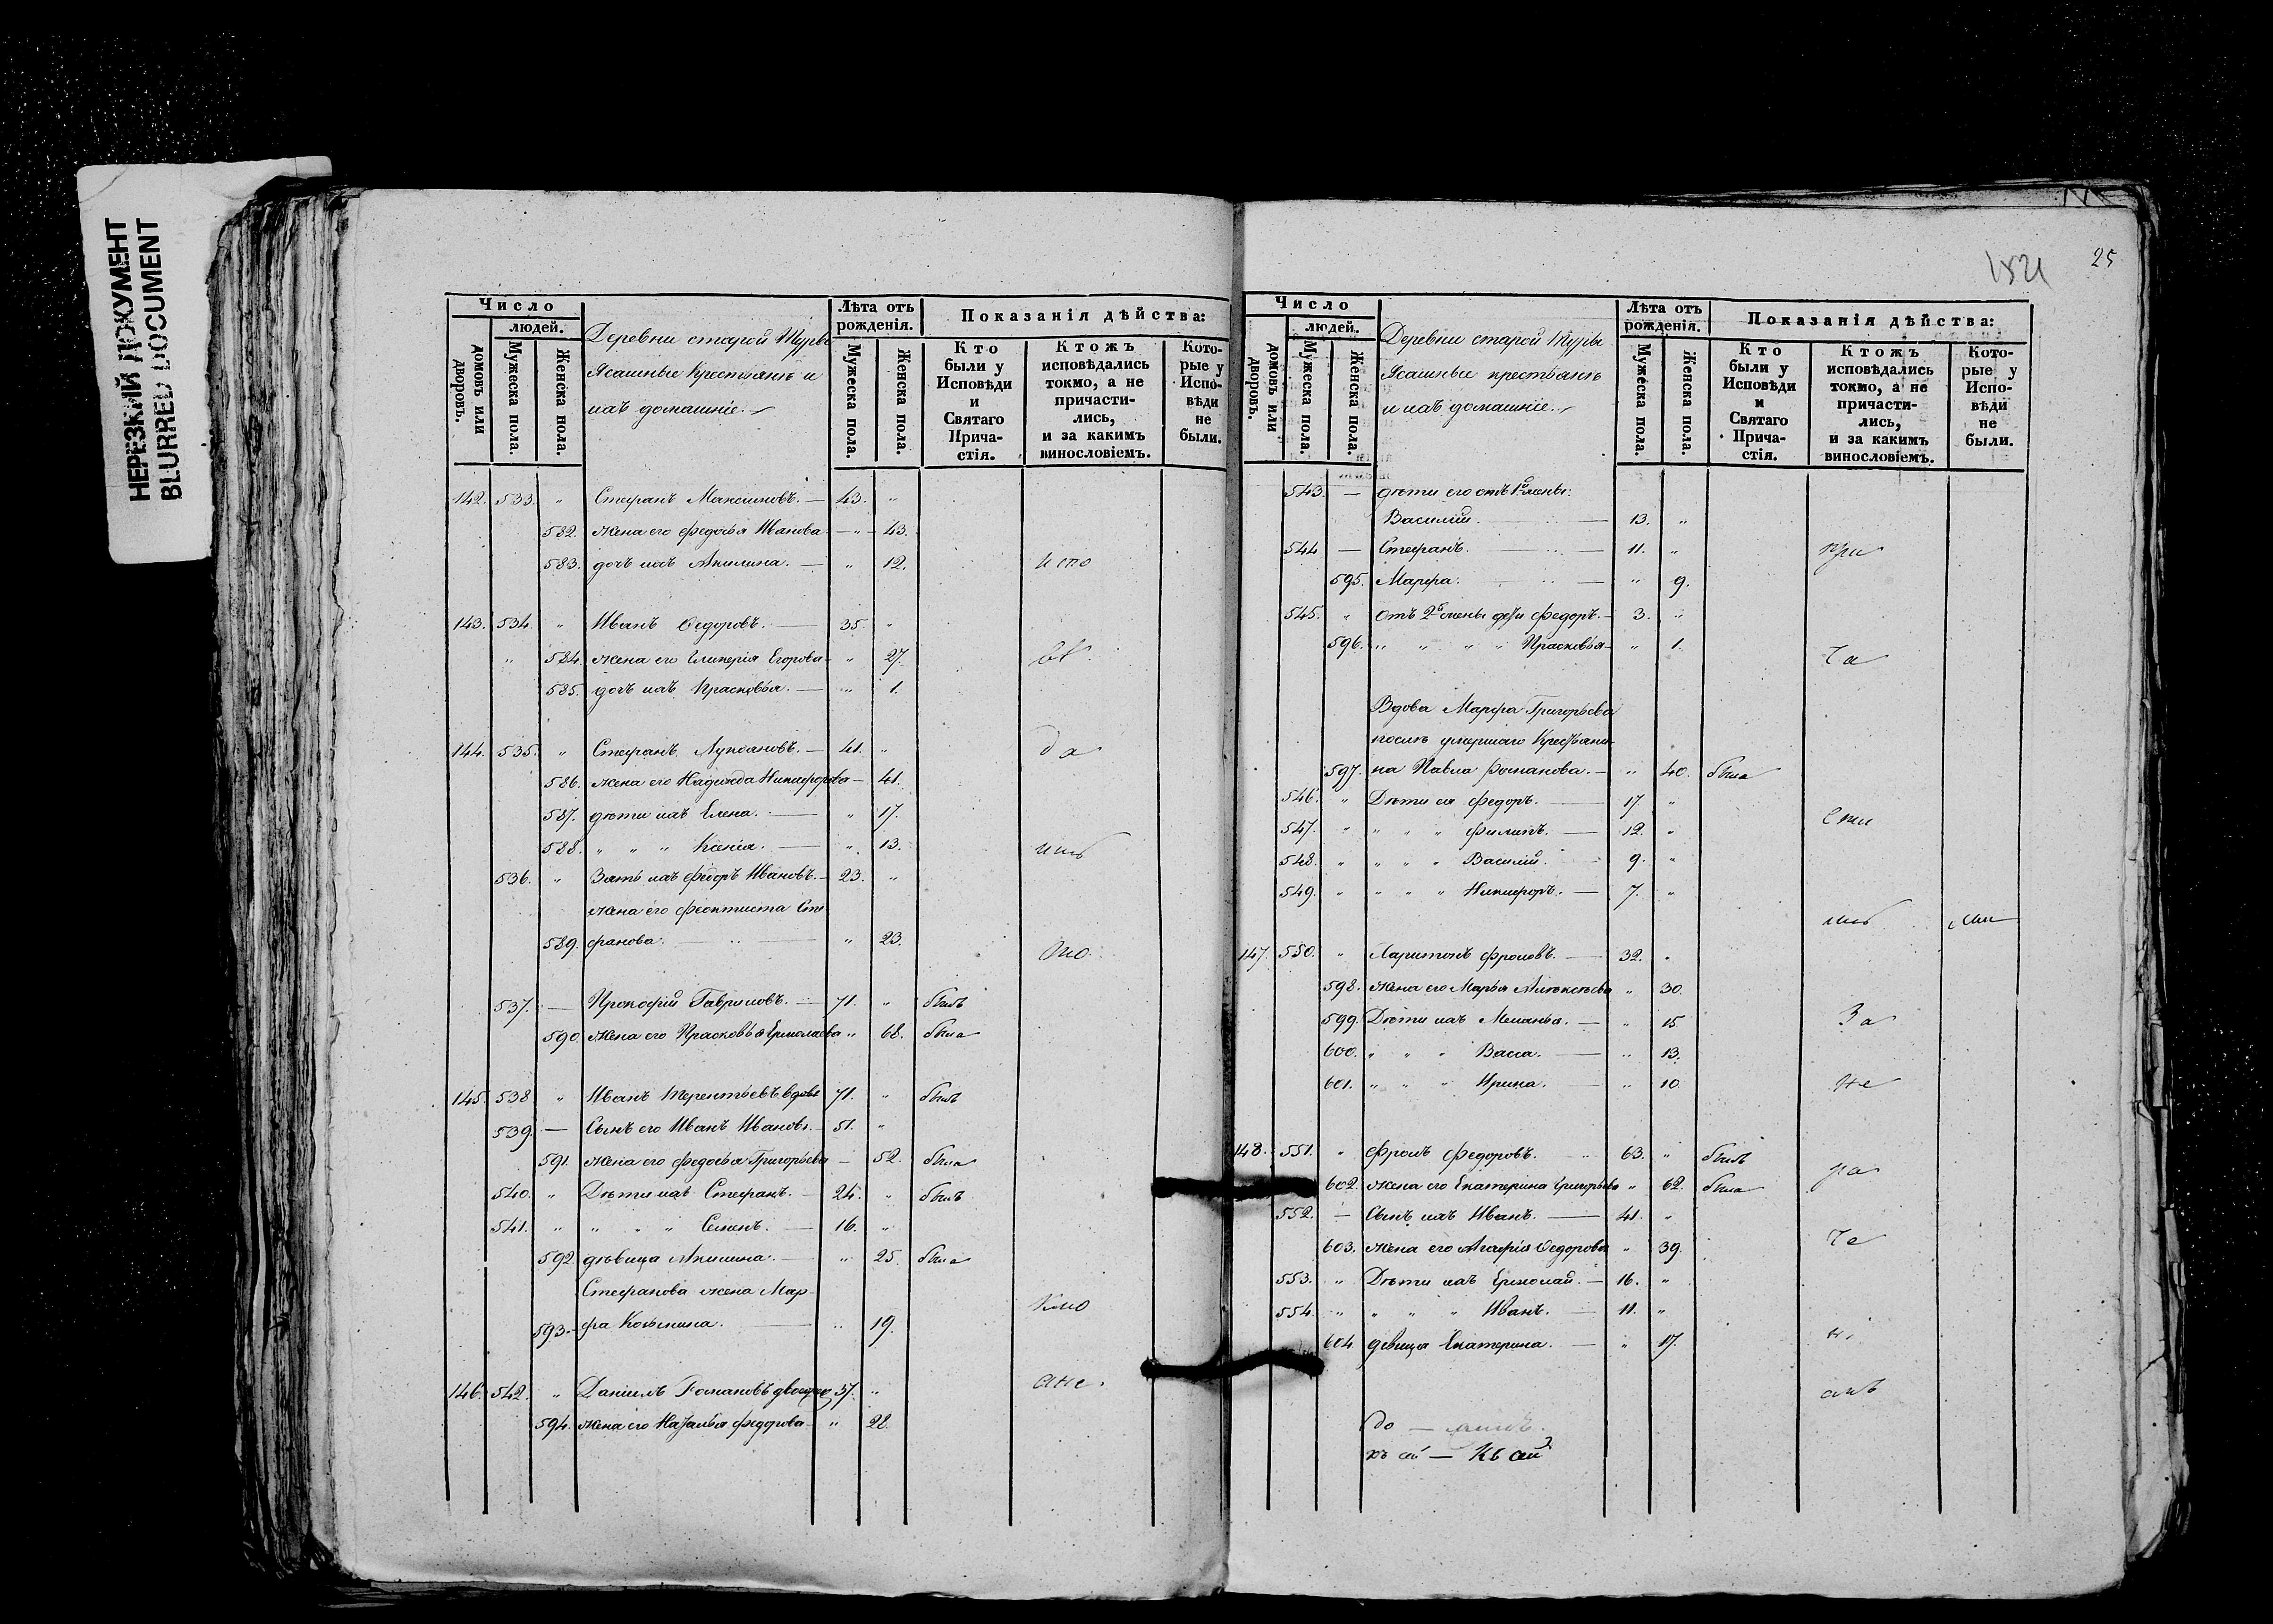 НЕРЕЗКИЙ ДОКУМЕНТ
BLURRED DOCUMENT
Число
людей.
домовъ или дворовъ.
Мужеска пола.
Женска пола.
Деревни старой Туры
Ясашные Крестьянѣ и
ихъ домашніе.
Лѣта отъ рожденія.
Мужеска пола.
Женска пола.
Показанія дѣйства:
Кто были у Исповѣди и Святаго Прича-стія.
Ктожъ исповѣдались токмо, а не причасти-лись, и за какимъ винословіемъ.
Кото-рые у Испо-вѣди не были.
142. 533. " Стефанъ Максимовъ. — 43. "
582. жена его Федосья Иванова — " — 43.
583. дочь ихъ Акилина. — " 12. испо
143. 534. " Иванъ Ѳедоровъ. — 35. "
" 584. жена его Гликерія Егорова — " 27. вѣ
585. дочь ихъ Прасковья. — " 1.
144. 535. " Стефанъ Лукояновъ. — 41. " да
586. жена его Надежда Никифорова — 41.
587. дѣти ихъ Елена. — " 17.
588. " " " Ксенія. — " 13. лись
536. " Зять ихъ Федоръ Ивановъ. — 23. "
жена его Феоктиста Сте
589. фанова. — " 23. то
537. — Прокофій Гавриловъ. — 71. " былъ
590. жена его Прасковья Ермолаева " 68. была
145. 538 " Иванъ Терентьевъ вдовъ 71. " былъ
539. — Сынъ его Иванъ Ивановъ. 51. "
591. жена его Федосья Григорьева — 52. была
540. " Дѣти ихъ Стефанъ. — 24. " былъ
541. " " " " Семенъ. — 16. "
592. дѣвица Акилина. — " 25. была
Стефанова жена Мар-
593. фа Козьмина. — " 19. кмо
146. 542. " Даніилъ Романовъ 37. " ане.
594. жена его Наталья Федорова — " 28.
1821
25
Число
людей.
домовъ или дворовъ.
Мужеска пола.
Женска пола.
Деревни старой Туры
Ясашные крестьянѣ
и ихъ домашніе.
Лѣта отъ рожденія.
Мужеска пола.
Женска пола.
Показанія дѣйства:
Кто были у Исповѣди и Святаго Прича-стія.
Ктожъ исповѣдались токмо, а не причасти-лись, и за какимъ винословіемъ.
Кото-рые у Испо-вѣди не были.
543. — дѣти его отъ 1й жены:
Василій. — 13. "
544 — Стефанъ. — 11. " при
595. Марфа. — " 9.
545. " отъ 2й жены дѣти Федоръ. — 3. "
596. " " " " Прасковья — " 1. ча
Вдова Марфа Григорьева
послѣ умершаго Крестьяни-
597. на Павла Романова. — " 40. была
546. " Дѣти ея Федоръ. — 17. "
547. " " " " Филипъ. — 12. " сти
548. " " " " Василій. — 9. "
549. " " " " Никифоръ. — 7. "
лись
147. 550. " Харитонъ Фроловъ. — 32. "
598. жена его Марья Алѣксѣева " 30.
599. Дѣти ихъ Меланья. — " 15 За
600. " " " Васса. — " 13.
601. " " " Ирина. — " 10. не
148. 551. " Фролъ Федоровъ. — 63. " былъ
602. жена его Екатерина Григорьева " 62. была ра
552. — Сынъ ихъ Иванъ. — 41. "
603. жена его Агафія Ѳедорова " 39. че
553. " Дѣти ихъ Ермолай. — 16. "
554. " " " " Иванъ. — 11. "
604 девица Екатерина. — " 17. ні